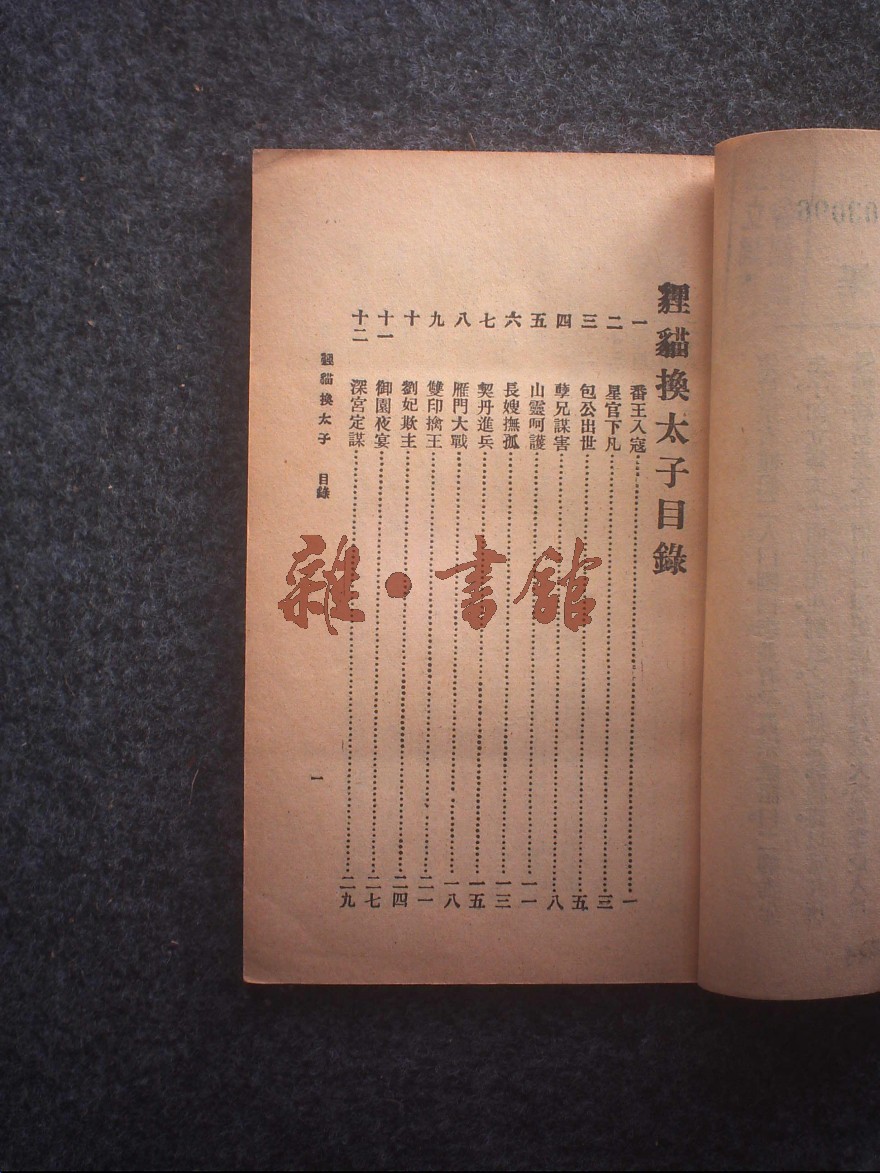 貍貓換太子目錄
一 番王入寇 一
二 星官下凡 三
三 包公出世 五
四 孽兄謀害 八
五 山靈呵護 一一
六 長嫂撫孤 一三
七 契丹進兵 一五
八 雁門大戰 一八
九 雙印擒王 二一
十 劉妃欺主 二四
十一 御園夜宴 二七
十二 深宮定謀 二九
貍貓換太子 目錄 一
雜·書館